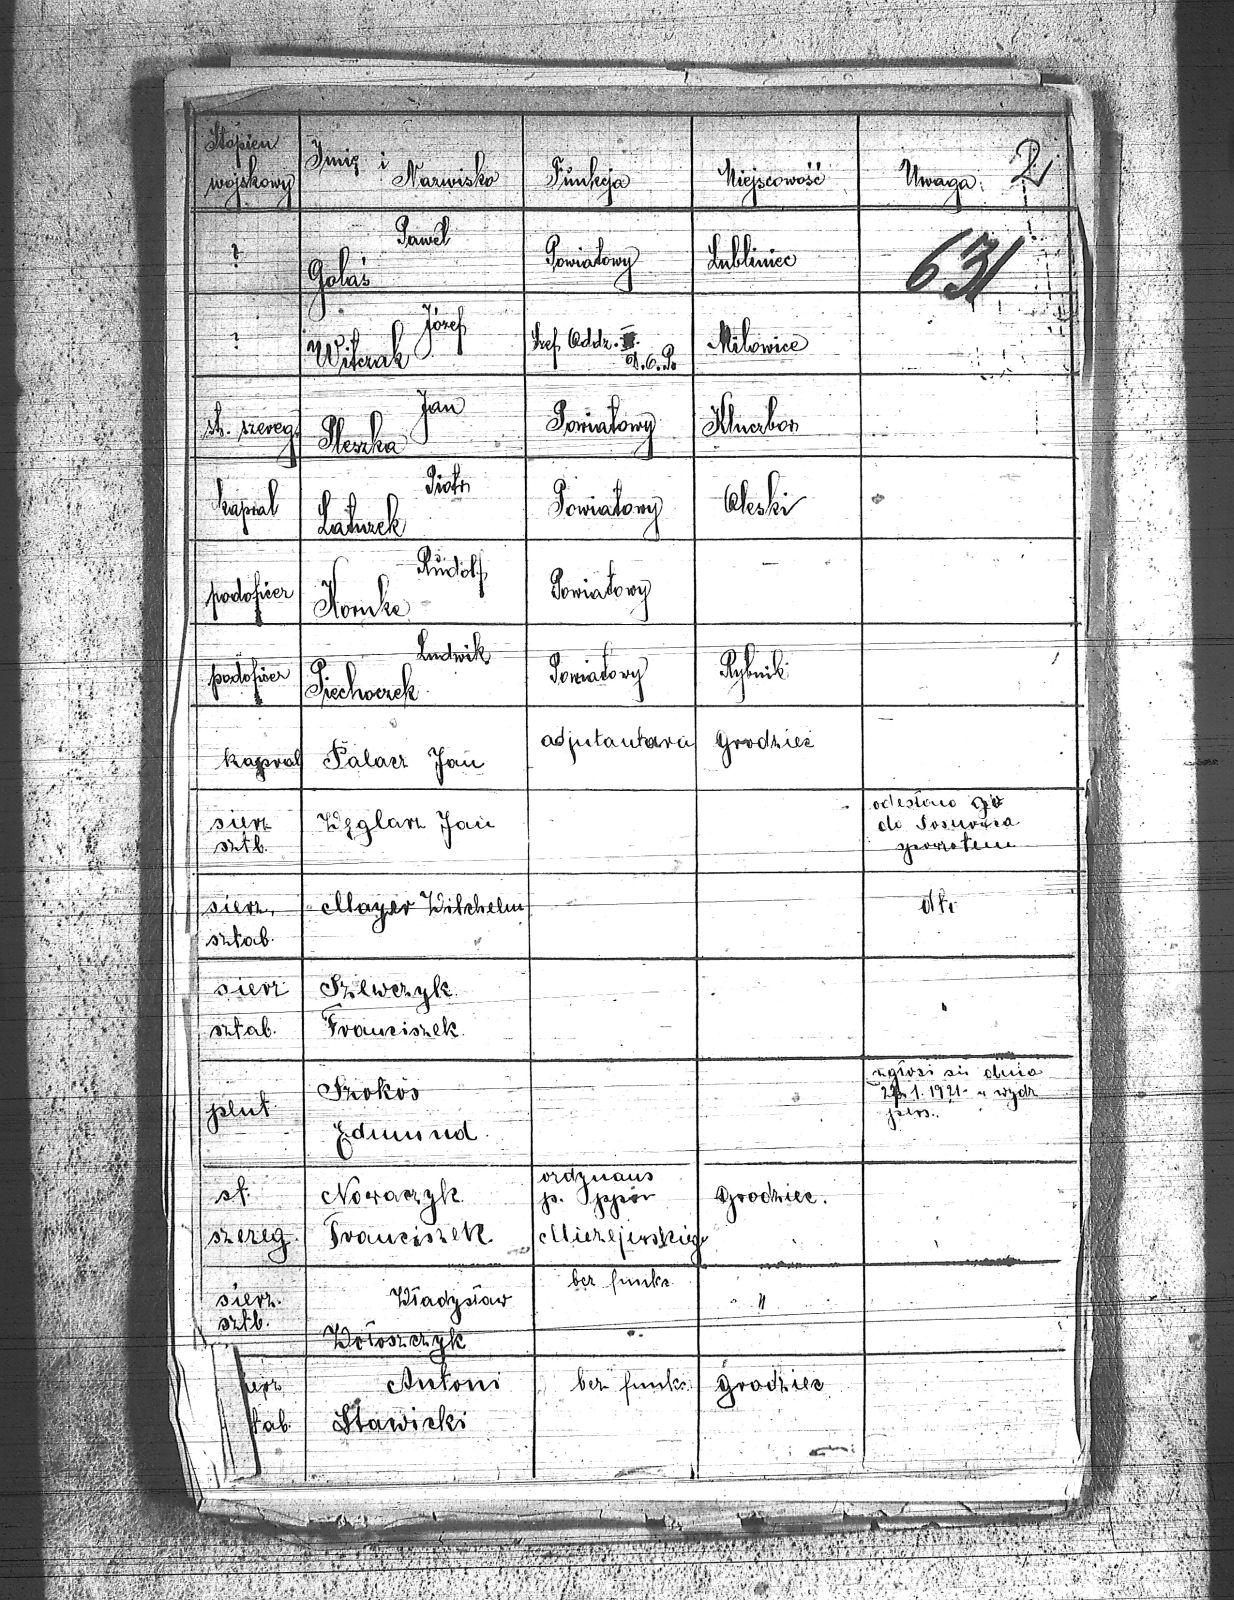 Stopień
wojskowy
Imię i
Nazwisko
Funkcja
Miejscowość
Uwaga.
2
?
Paweł
Golaś
Powiatowy
Lubliniec
631
?
Józef
Witczak
Szef Oddz.
D.O.P.
Milowice
st. szereg.
Jan
Pleszka
Powiatowy
Kluczbor
kapral
Piotr
Laturek
Powiatowy
Oleski
podoficer
Rudolf
Kornke
Powiatowy
podoficer
Ludwik
Piechoczek
Powiatowy
Rybnik
kapral
Palacz Jan
adjutantura
Grodziec
sierz
sztb.
Węglarz Jan
odesłano go
do Sosnowca
spowrotem
sierz.
sztab.
Mayer Wilchelm
dto
sierz
sztab.
Szewczyk
Franciszek
"
plut
Szokos
Edmund
zgłosi się dnia
1. 1921 u wydz
pers.
st.
szereg.
Nowaczyk
Franciszek
ordynans
p. ppor
Mierzejewskiego
Grodziec.
sierz.
sztb.
Władysław
Wołoszczyk
bez funkc.
"
ierz
tab.
Antoni
Stawicki
bez funkc.
Grodziec